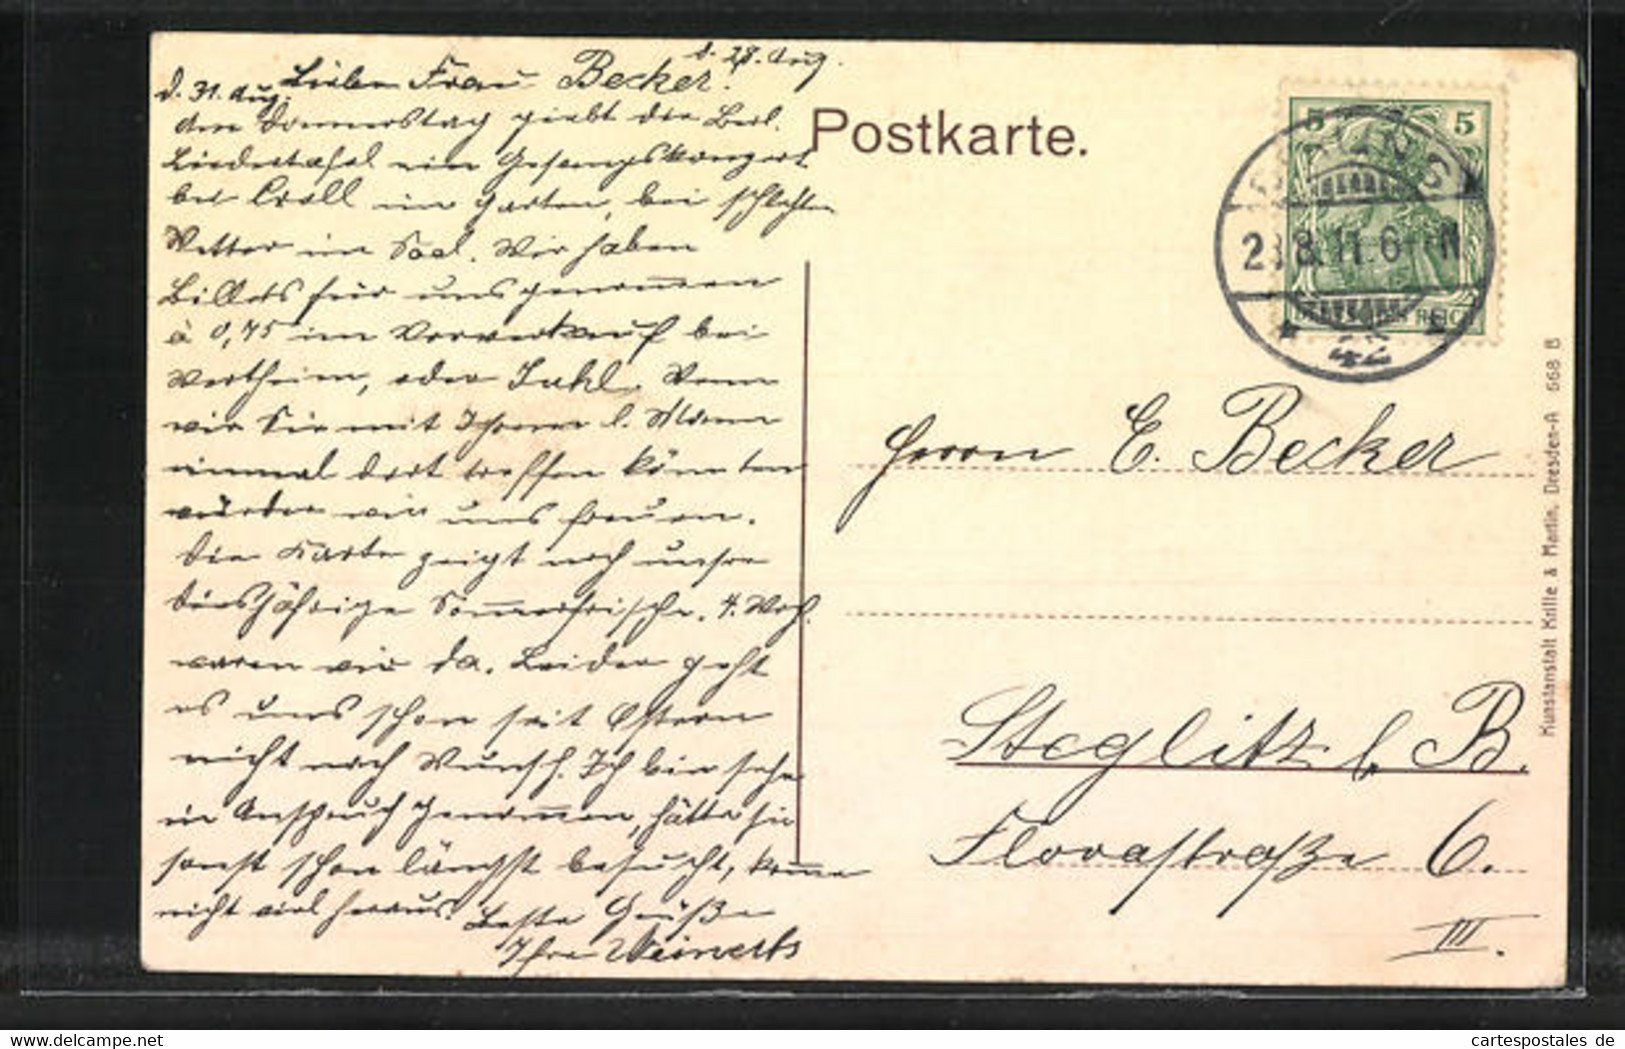 d. 28. Aug.
Liebe Frau Becker!
d. 31. Aug.
Am Donnerstag giebt die Berl.
Liedertafel ein Gesangskonzert
bei Kroll im Garten, bei schlechten
Wetter im Saal. Wir haben
Billets für uns genommen
à 0,75 im Vorverkauf bei
Wertheim, oder Wenn
wir Sie mit Ihrem l. Mann
einmal dort treffen könnten
würden wir uns freuen.
Die Karte zeigt noch unsre
diesjährige Sommerfrische. 4. Woch.
waren wir da. Leider geht
es uns schon seit Ostern
nicht nach Wunsch. Ich bin sehr
in Anspruch genommen, hätte Sie
sonst schon längst besucht, komme
nicht viel heraus. Beste Grüße
Ihre Weinerts
Postkarte.
5 5
BERLIN S
8.11.6
DEUTSCHES REICH
* 42 *
Herrn E. Becker
Steglitz b. B.
Florastraße 6.
III.
Kunstanstalt Krille & Martin, Dresden-A 668 B
www.delcampe.net
cartespostales de